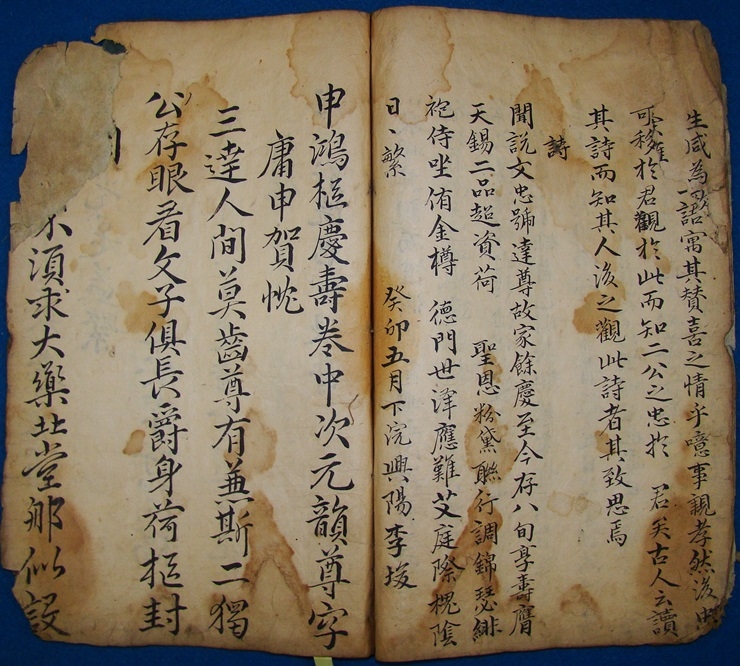 生咸爲謌詩寓其賛喜之情乎噫事親孝然後忠
可移於君觀於此而知二公之忠於 君矣古人云讀
其詩而知其人後之觀此詩者其致思焉
詩
聞說文忠號達尊故家餘慶至今存八旬享壽膺
天錫二品超資荷 聖恩粉黛聯行調錦瑟緋
袍侍坐侑金樽 德門世澤應難艾庭除槐陰
日〻繁 癸卯五月下浣興陽李㙖
申鴻樞慶壽卷中次元韻尊字
庸申賀忱
三達人間莫齒尊有兼斯二獨
公存眼看父子俱長爵身荷樞封
不須求大藥北堂那似設